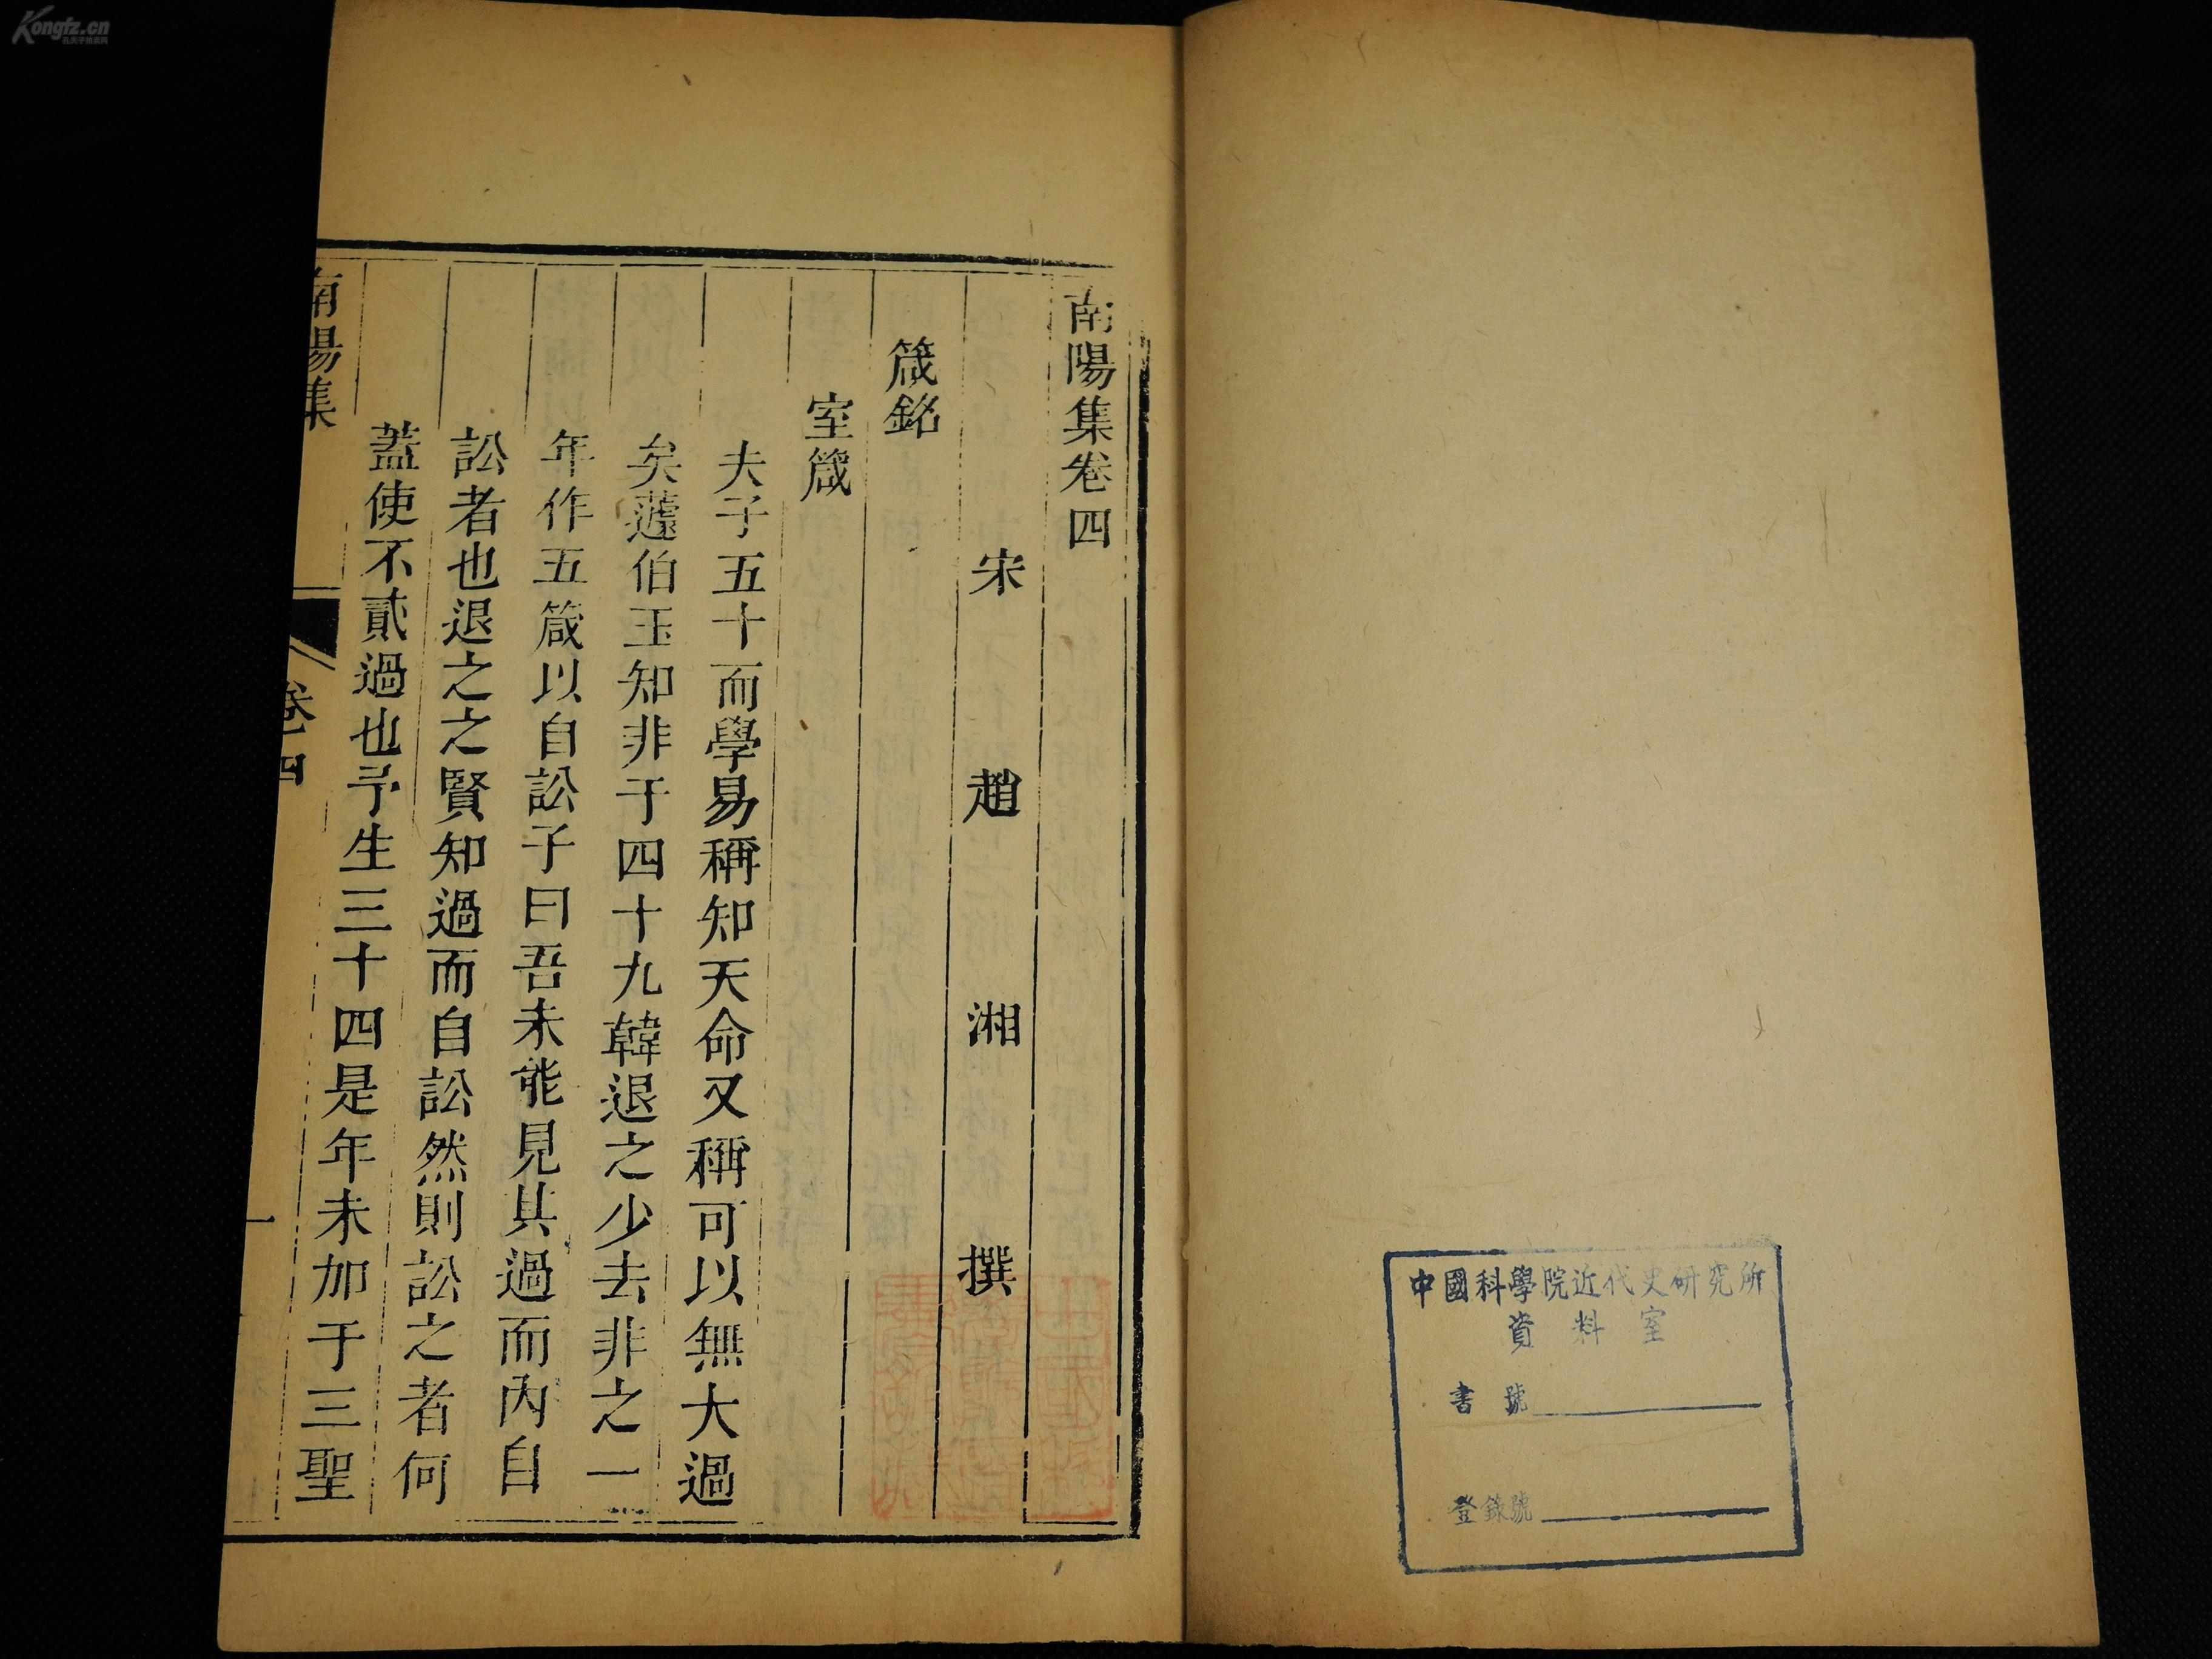 南陽集卷四
宋 趙 湘 撰
箴銘
室箴
夫子五十而學易稱知天命又稱可以無大過
矣蘧伯玉知非于四十九韓退之少去非之一
年作五箴以自訟子曰吾未能見其過而內自
訟者也退之之賢知過而自訟然則訟之者何
蓋使不貳過也予生三十四是年未加于三聖
南陽集
卷四
一
中國科學院近代史研究所
資料室
書號
登錄號
Kongfz.cn